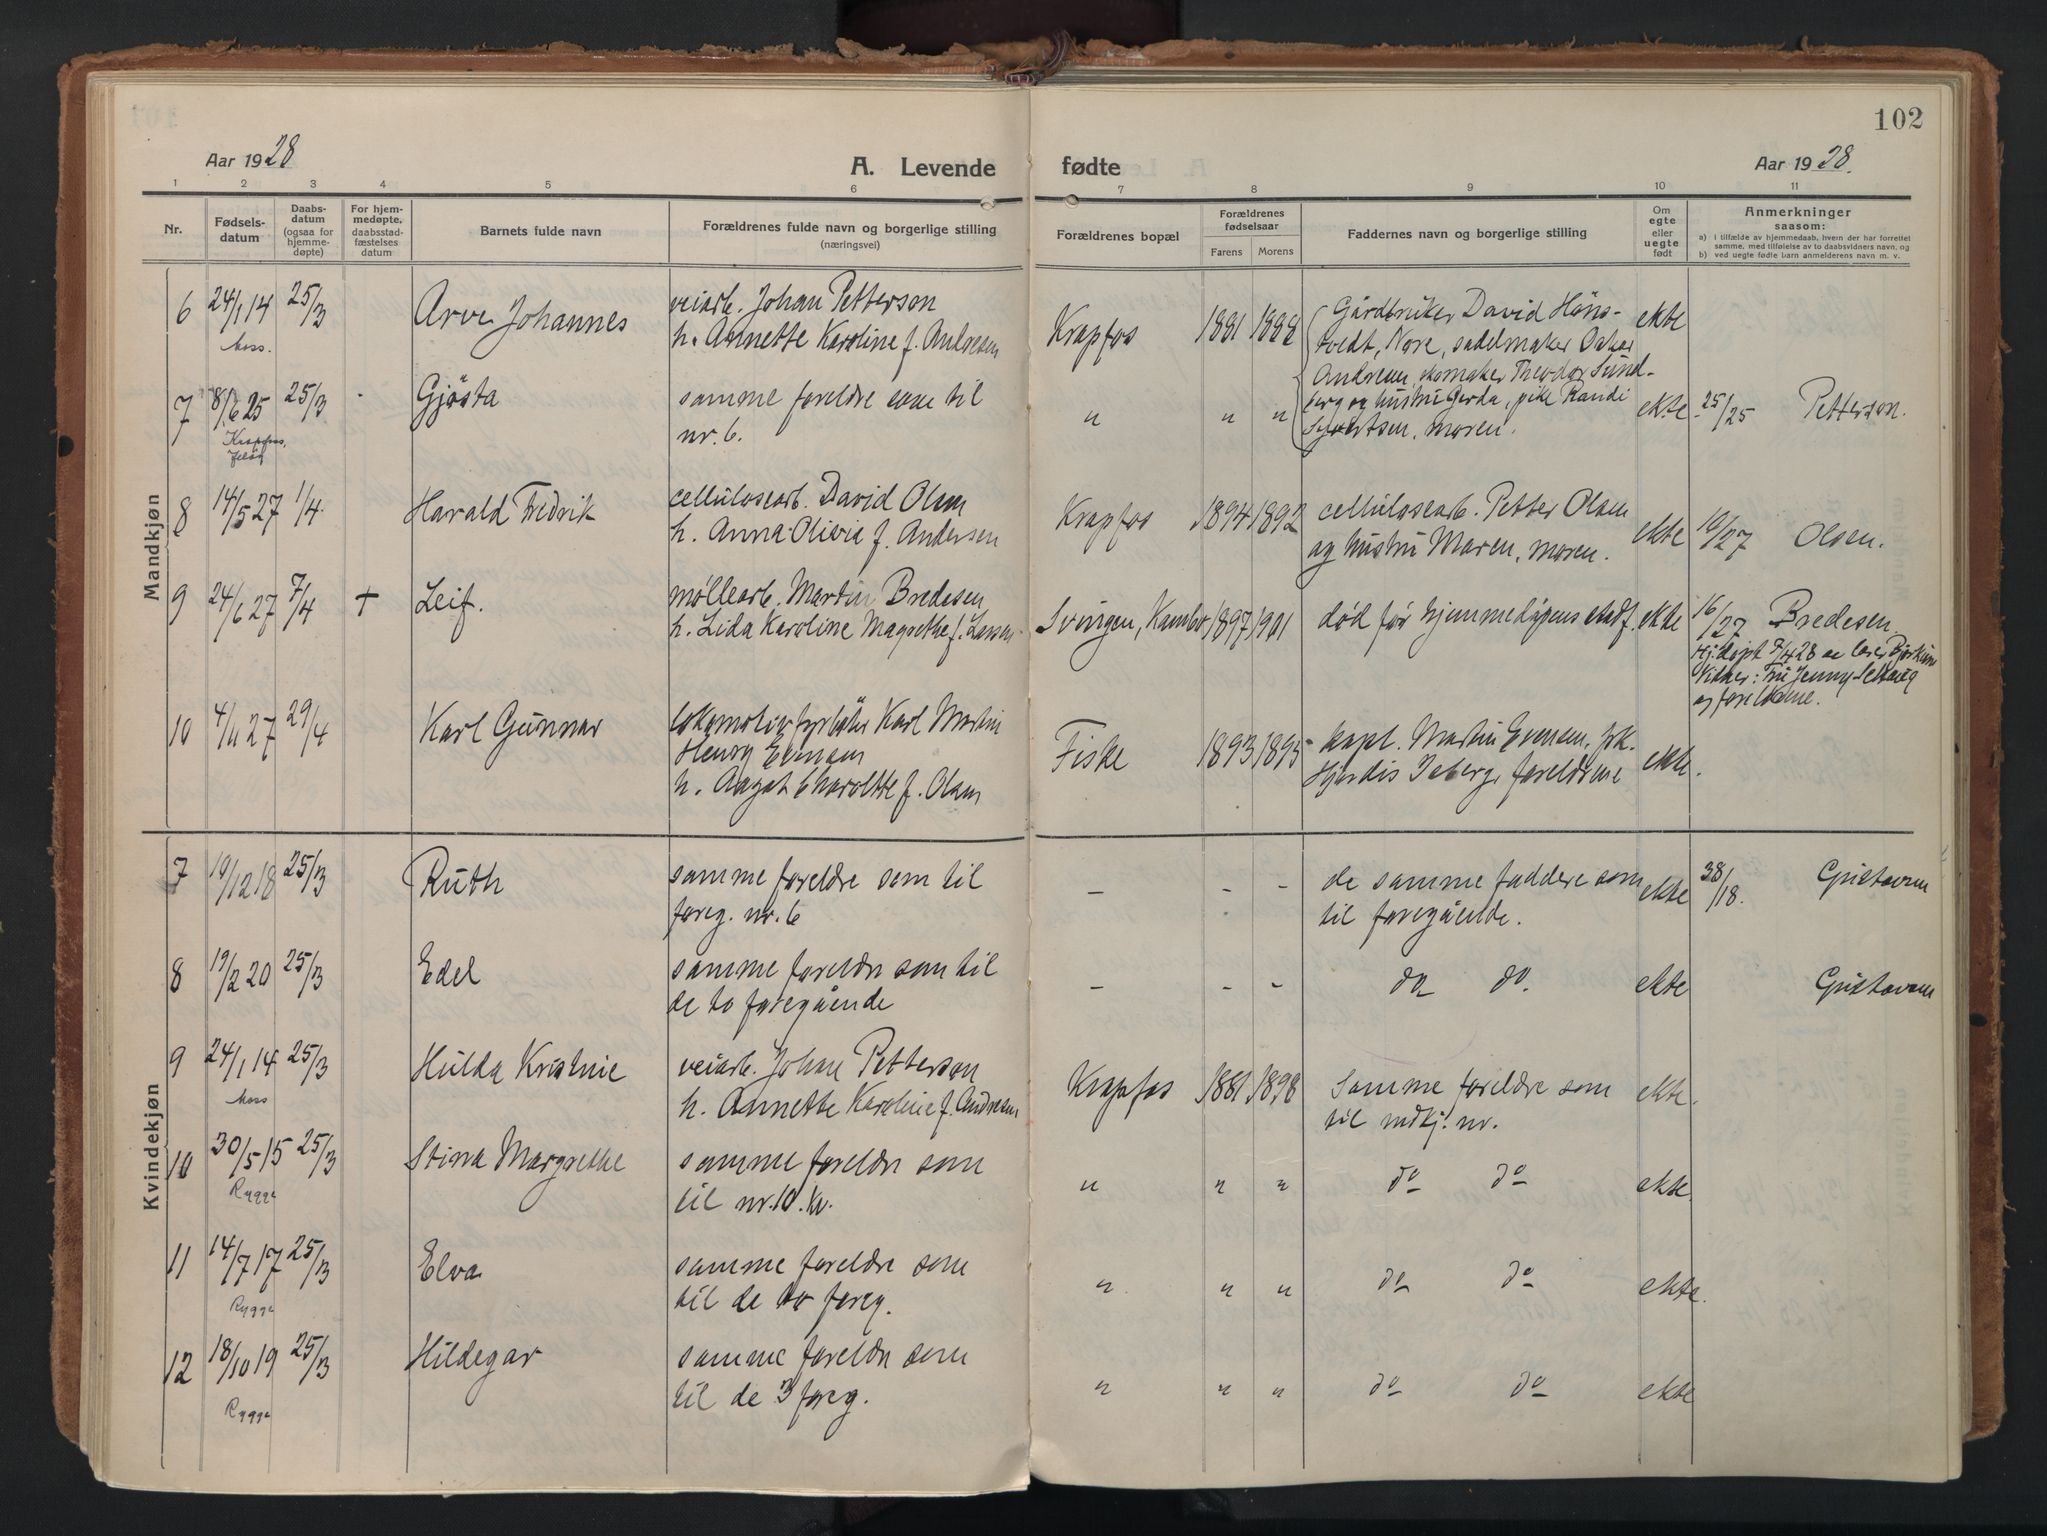 102
Aar 1928
A. Levende fødte
Aar 1928.
1 2 3 4 5 6 7 8 9 10 11
Nr.
Fødsels-
datum
Daabs-
datum
(ogsaa for
hjemme-
døpte)
For hjem-
medøpte,
daabsstad-
fæstelses
datum
Barnets fulde navn
Forældrenes fulde navn og borgerlige stilling
(næringsvei)
Forældrenes bopæl
Forældrenes
fødselsaar
Farens Morens
Faddernes navn og borgerlige stilling
Om
egte
eller
uegte
født
Anmerkninger
saasom:
a) i tilfælde av hjemmedaab, hvem der har forrettet
samme, med tilføielse av to daabsvidners navn, og
b) ved uegte fødte barn anmelderens navn m. v.
Mandkjøn
6 24/1 14 25/3 Arve Johannes veiarb. Johan Petterson Krapfos 1881 1888 Gårdbruker David Høns-
Moss. h. Annette Karoline f. Andresen tvedt, Nore, sadelmaker Oskar ekte
7 8/6 25 25/3 Gjøsta samme foreldre som til Andresen, skomaker Theodor Sund-
Krapfoss, Jeløy nr. 6. " " " berg og hustru Gerda, pike Randi ekte 25/25 Petterson.
Syvertsen, moren.
8 14/5 27 1/4 Harald Fredrik cellulosearb. David Olsen Krapfos 1894 1892 cellulosearb. Petter Olsen ekte 10/27 Olsen.
h. Anna Olivia f. Andersen og hustru Maren, moren.
9 24/6 27 7/4 + Leif. møllearb. Martin Bredesen Svingen, Kambo 1897 1901 død før hjemmedåpens stadf. ekte 16/27 Bredesen
h. Lida Karoline Magrethe f. Larsen Hj.døpt 7/4 28 av
Vidner: Fru Jenny
og foreldrene.
10 4/11 27 29/4 Karl Gunnar lokomotivfyrbøter Karl Martin Fiske 1893 1895 kapt. Martin Evensen, frk.
Henry Evensen Hjørdis Isberg, foreldrene ekte.
h. Aagot Charoltte f. Olsen
Kvindekjøn
7 19/12 18 25/3 Ruth samme foreldre som til - - - de samme faddere som ekte 38/18. Gustavsen
foreg. nr. 6 til foregående.
8 19/2 20 25/3 Edel samme foreldre som til - - - do do. ekte Gustavsen
de to foregående
9 24/1 14 25/3 Hulda Kristine veiarb. Johan Petterson Krapfos 1881 1898 Samme foreldre som ekte.
Moss h. Annette Karoline f. Andresen til mdkj. nr.
10 30/5 15 25/3 Stina Margrethe samme foreldre som " " " do do ekte
Rygge til nr. 10. kv.
11 14/7 17 25/3 Elva samme foreldre som " " " do do ekte.
Rygge til de to foreg.
12 18/10 19 25/3 Hildegar samme foreldre som " " " do do ekte
Rygge til de 3 foreg.